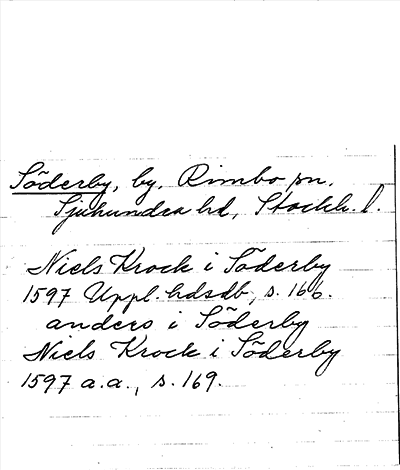 Söderby, by, Rimbo sn,
Sjuhundra hd, Stockh. l.
Niels Krock i Söderby
1597 Uppl. hdsdb, s. 166.
anders i Söderby
Niels Krock i Söderby
1597 a.a., s. 169.